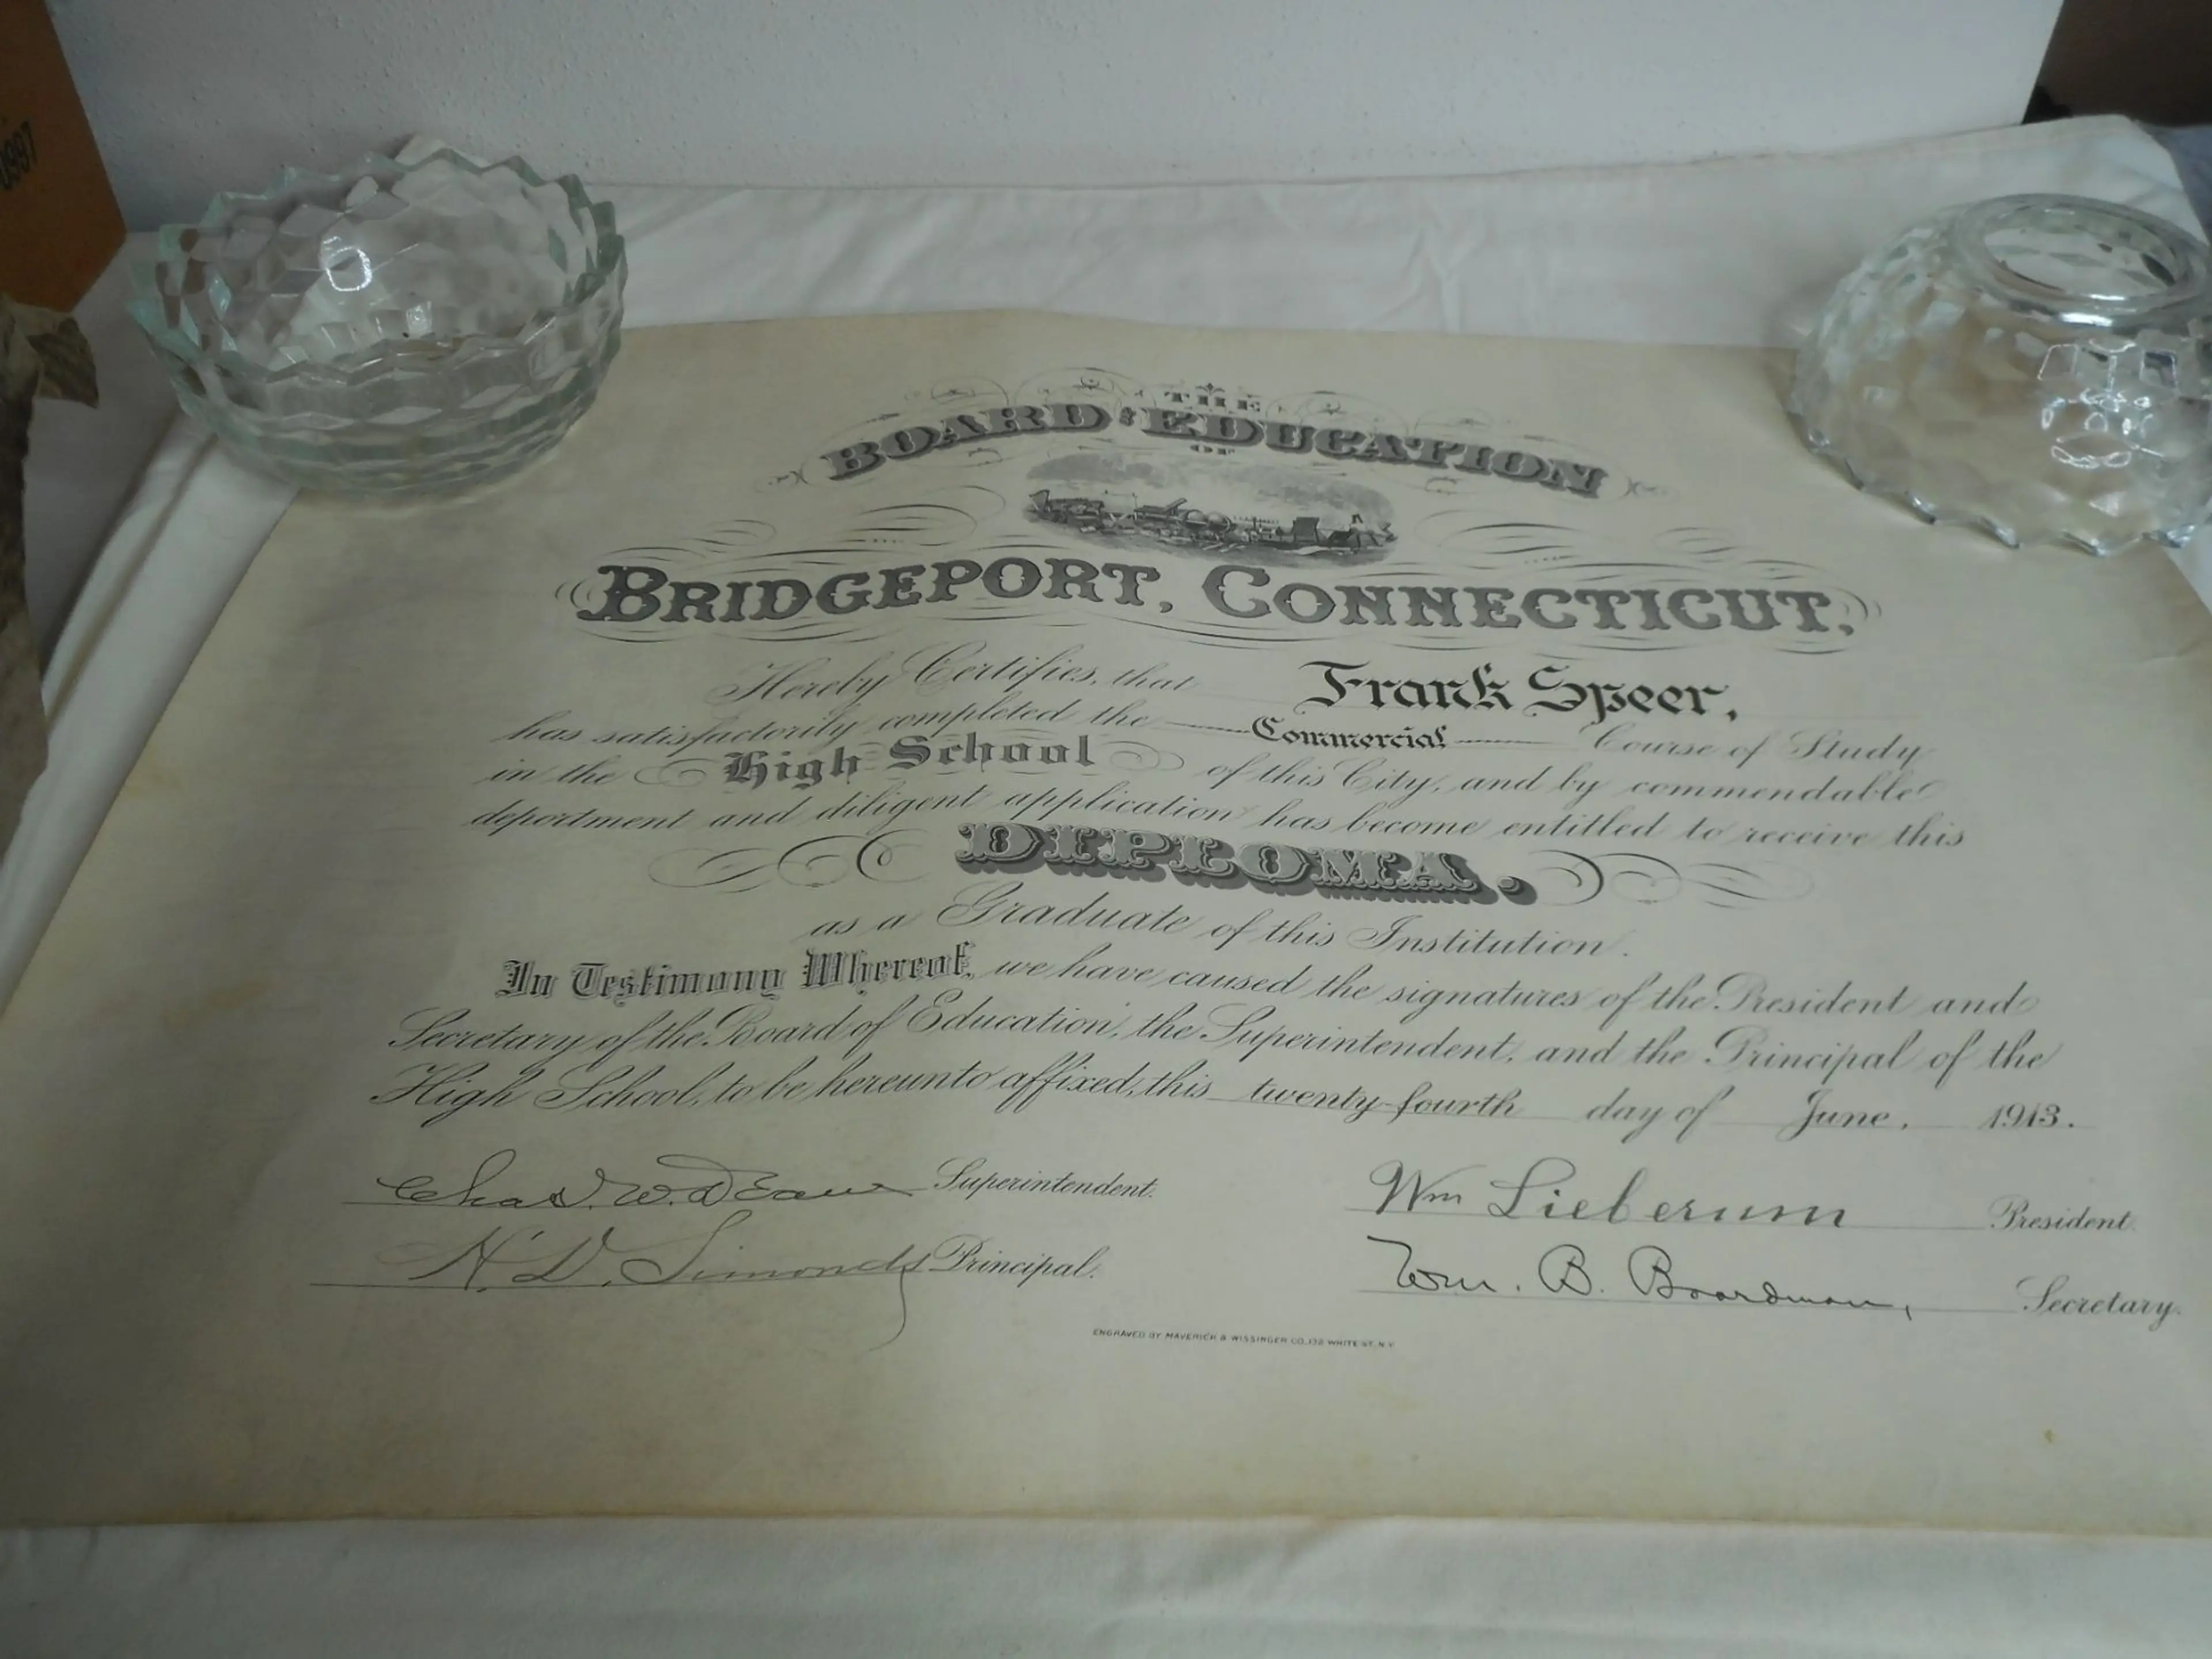 0997
THE
BOARD OF EDUCATION
OF
BRIDGEPORT, CONNECTICUT,
Hereby Certifies, that Frank Speer,
has satisfactorily completed the Commercial Course of Study
in the High School of this City, and by commendable
deportment and diligent application has become entitled to receive this
DIPLOMA.
as a Graduate of this Institution.
In Testimony Whereof, we have caused the signatures of the President and
Secretary of the Board of Education, the Superintendent, and the Principal of the
High School, to be hereunto affixed, this twenty-fourth day of June, 1913.
Chas. W. Deane Superintendent.
Wm Lieberum President.
H. D. Simonds Principal.
Wm. B. Boardman, Secretary.
ENGRAVED BY MAVERICK & WISSINGER CO., 132 WHITE ST. N.Y.